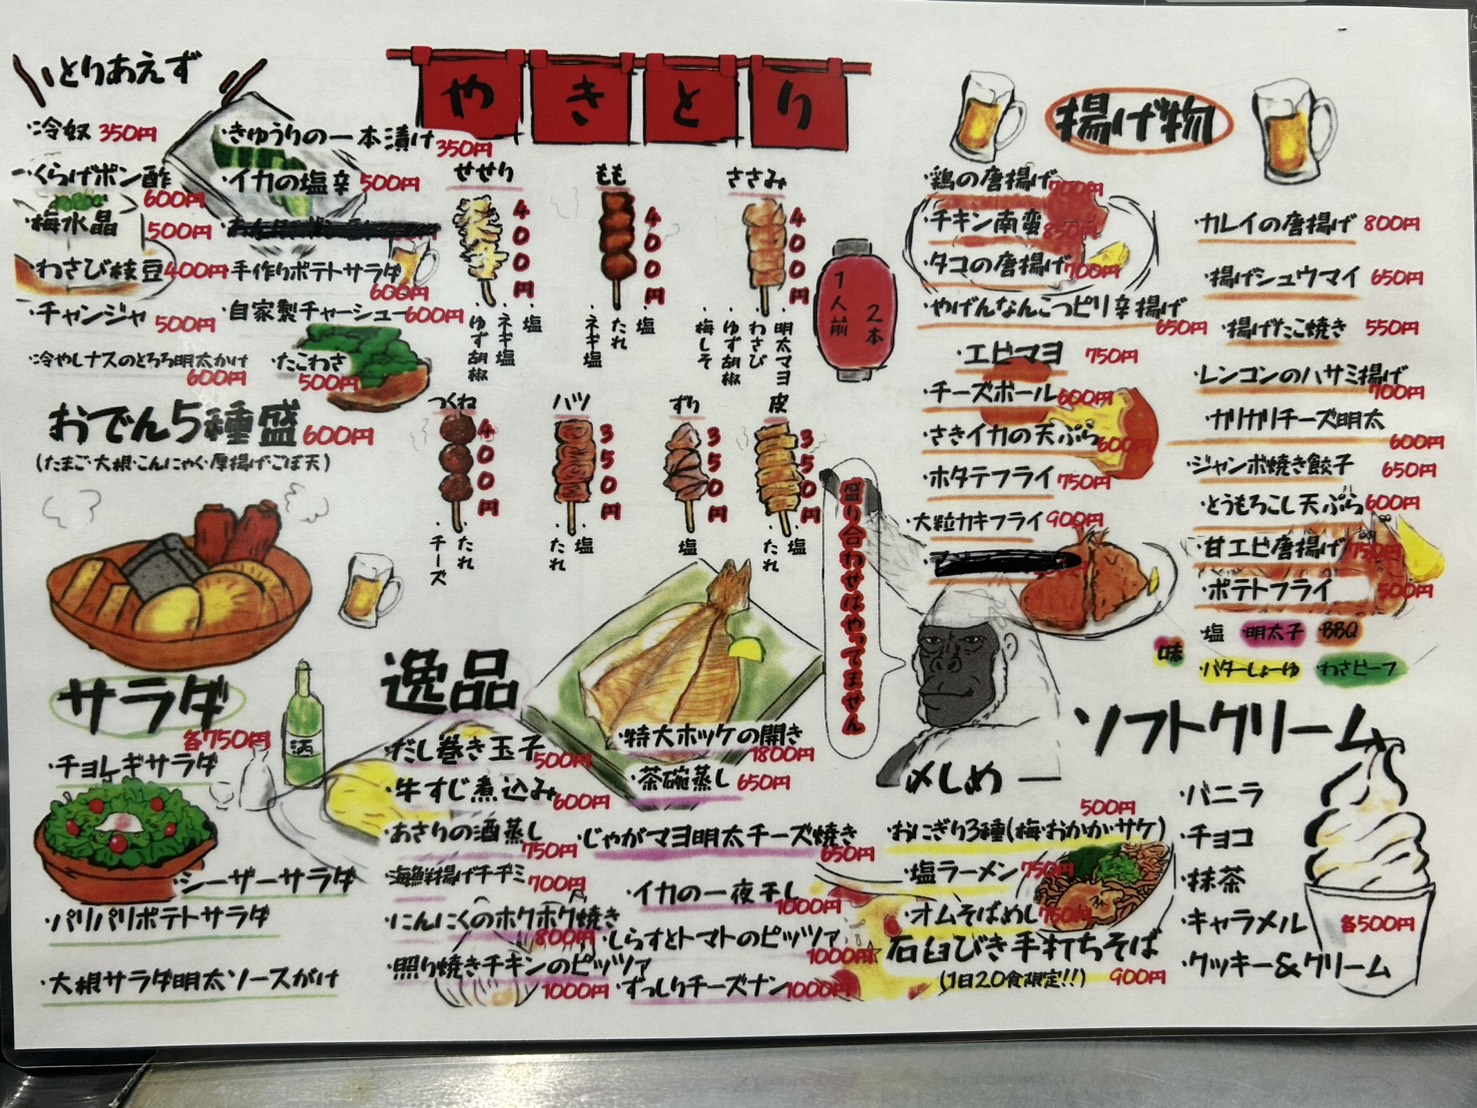 とりあえず
・冷奴 350円
・くらげポン酢 600円
・梅水晶 500円
・わさび枝豆 400円
・チャンジャ 500円
・冷やしナスのとろろ明太かけ 600円
・きゅうりの一本漬け 350円
・イカの塩辛 500円
・手作りポテトサラダ 600円
・自家製チャーシュー 600円
・たこわさ 500円
おでん5種盛 600円
(たまご・大根・こんにゃく・厚揚げ・ごぼ天)
サラダ
各750円
・チョレギサラダ
・シーザーサラダ
・パリパリポテトサラダ
・大根サラダ明太ソースがけ
酒
やきとり
せせり 400円
・塩
・ネギ塩
・ゆず胡椒
もも 400円
・塩
・たれ
・ネギ塩
ささみ 400円
・明太マヨ
・わさび
・ゆず胡椒
・梅しそ
1人前
2本
つくね 400円
・たれ
・チーズ
ハツ 350円
・塩
・たれ
ずり 350円
・塩
皮 350円
・塩
・たれ
盛り合わせはやってません
逸品
・だし巻き玉子 500円
・牛すじ煮込み 600円
・あさりの酒蒸し 750円
・海鮮揚げチヂミ 700円
・にんにくのホクホク焼き 800円
・照り焼きチキンのピッツァ 1000円
・特大ホッケの開き 1800円
・茶碗蒸し 650円
・じゃがマヨ明太チーズ焼き 650円
・イカの一夜干し 1000円
・しらすとトマトのピッツァ 1000円
・ずっしりチーズナン 1000円
揚げ物
・鶏の唐揚げ 700円
・チキン南蛮 850円
・タコの唐揚げ 700円
・やげんなんこつピリ辛揚げ 650円
・エビマヨ 750円
・チーズボール 600円
・さきイカの天ぷら 600円
・ホタテフライ 750円
・大粒カキフライ 900円
・カレイの唐揚げ 800円
・揚げシュウマイ 650円
・揚げたこ焼き 550円
・レンコンのハサミ揚げ 700円
・カリカリチーズ明太 600円
・ジャンボ焼き餃子 650円
・とうもろこし天ぷら 600円
・甘エビ唐揚げ 750円
・ポテトフライ 500円
味
・塩 ・明太子 ・BBQ
・バターしょーゆ ・わさビーフ
〆しめ
500円
・おにぎり3種(梅・おかか・サケ)
・塩ラーメン 750円
・オムそばめし 750円
☆石臼びき手打ちそば
(1日20食限定!!) 900円
ソフトクリーム
・バニラ
・チョコ
・抹茶
・キャラメル
・クッキー&クリーム
各500円